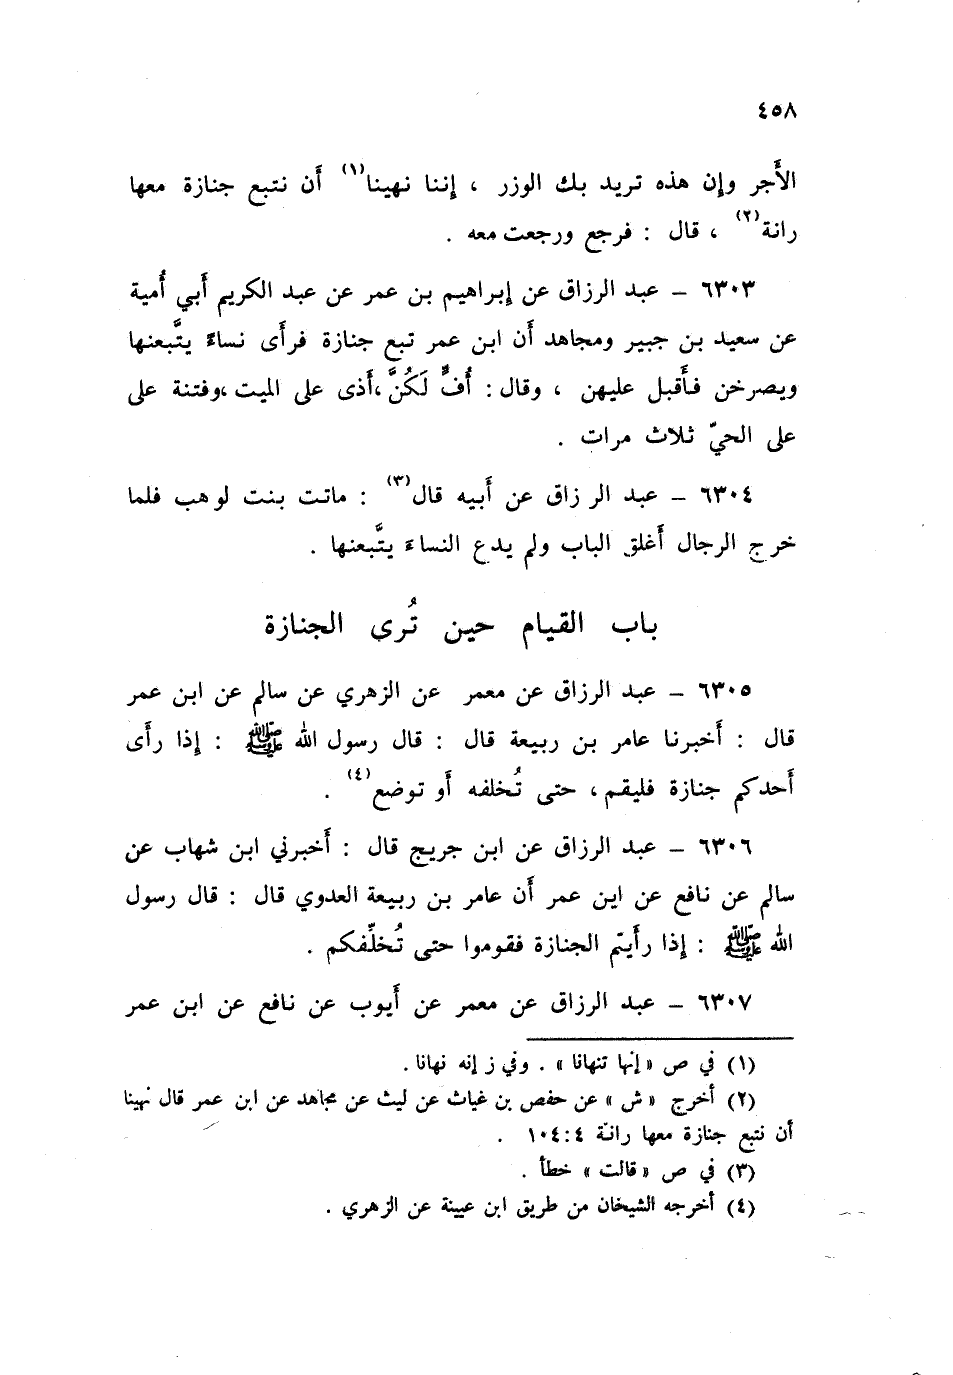 ٤٥٨
الأَجر وإن هذه تريد بك الوزر ، إننا نهينا(١) أَن نتبع جنازة معها
رانة(٢) ، قال : فرجع ورجعت معه .
٦٣٠٣ – عبد الرزاق عن إبراهيم بن عمر عن عبد الكريم أَبي أُمية
عن سعيد بن جبير ومجاهد أَن ابن عمر تبع جنازة فرأَى نساءً يتَّبعنها
ويصرخن فأَقبل عليهن ، وقال : أُفٍّ لَكُنَّ ،أَذى على الميت ،وفتنة على
على الحيّ ثلاث مرات .
٦٣٠٤ – عبد الرزاق عن أَبيه قال(٣) : ماتت بنت لوهب فلما
خرج الرجال أَغلق الباب ولم يدع النساءَ يتَّبعنها .
باب القيام حين تُرى الجنازة
٦٣٠٥ – عبد الرزاق عن معمر عن الزهري عن سالم عن ابن عمر
قال : أَخبرنا عامر بن ربيعة قال : قال رسول الله ﷺ : إذا رأَى
أَحدكم جنازة فليقم ، حتى تُخلفه أَو توضع(٤) .
٦٣٠٦ – عبد الرزاق عن ابن جريج قال : أَخبرني ابن شهاب عن
سالم عن نافع عن ابن عمر أَن عامر بن ربيعة العدوي قال : قال رسول
الله ﷺ : إذا رأَيتم الجنازة فقوموا حتى تُخلِّفكم .
٦٣٠٧ – عبد الرزاق عن معمر عن أَيوب عن نافع عن ابن عمر
(١) في ص « إنها تنهانا » . وفي ز إنه نهانا .
(٢) أخرج « ش » عن حفص بن غياث عن ليث عن مجاهد عن ابن عمر قال نهينا
أن نتبع جنازة معها رانة ٤ : ١٠٤ .
(٣) في ص « قالت » خطأ .
(٤) أخرجه الشيخان من طريق ابن عيينة عن الزهري .